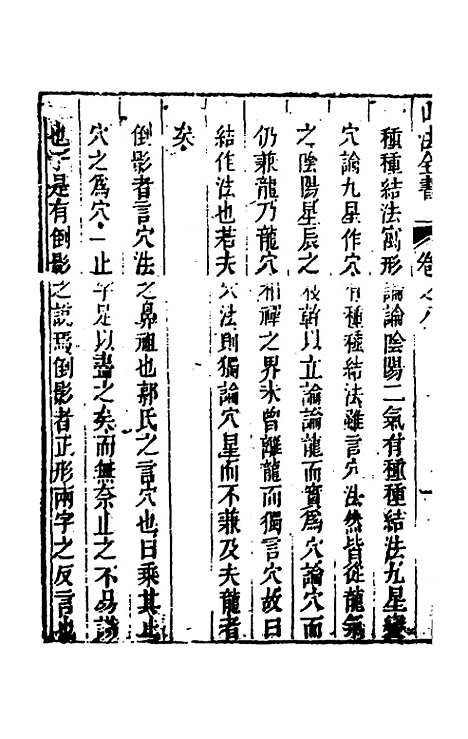 山法全書
卷之八
種種結法窩形論論陰陽二氣有種種結法九星變
穴論九星作穴有種種結法雖言穴法然皆從龍氣
之陰陽星辰之發斡以立論論龍而實爲穴論穴而
仍兼龍乃龍穴相禪之界未曾離龍而獨言穴故曰
結作法也若夫穴法則獨論穴星而不兼及夫龍者
矣
倒影者言穴法之鼻祖也郭氏之言穴也曰乘其止
穴之爲穴一止字足以盡之矣而無奈止之不易識
也于是有倒影之說焉倒影者正形兩字之反言也